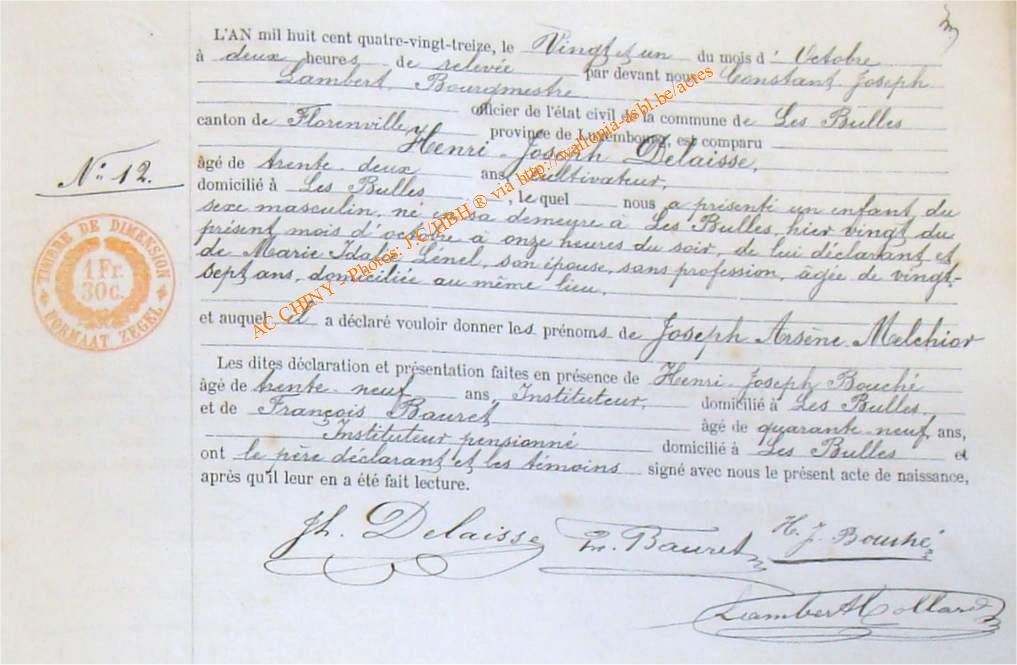 L'AN mil huit cent quatre-vingt-treize, le Vingt et un du mois d'Octobre
à deux heures de relevée par devant nous Constant Joseph
Lambert, Bourgmestre
officier de l'état civil de la commune de Les Bulles
canton de Florenville, province de Luxembourg, est comparu
Henri-Joseph Delaisse,
âgé de trente-deux ans, cultivateur,
domicilié à Les Bulles, le quel nous a présenté un enfant du
sexe masculin, né en sa demeure à Les Bulles, hier vingt du
présent mois d'octobre à onze heures du soir, de lui déclarant et
de Marie Lénel, son épouse, sans profession, âgée de vingt-
sept ans, domiciliée au même lieu,
et auquel il a déclaré vouloir donner les prénoms de Joseph Arsène Melchior
Les dites déclaration et présentation faites en présence de Henri-Joseph Bouché
âgé de trente-neuf ans, Instituteur, domicilié à Les Bulles,
et de François Bauret âgé de quarante-neuf ans,
Instituteur pensionné domicilié à Les Bulles et
ont le père déclarant et les témoins signé avec nous le présent acte de naissance,
après qu'il leur en a été fait lecture.
Jh. Delaisse
Bauret
H. J. Bouché
Lambert Collard
No 12.
TIMBRE DE DIMENSION
1 Fr.
30 c.
FORMAAT ZEGEL
AC CHINY - Photos: J.C/HBH ® via http://wallonia-asbl.be/actes